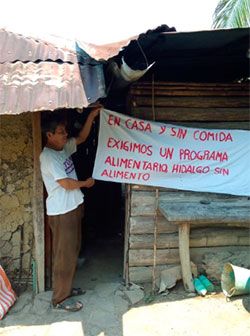 EN CASA Y SIN COMIDA
EXIGIMOS UN PROGRAMA
ALIMENTARIO. HIDALGO SIN
ALIMENTO